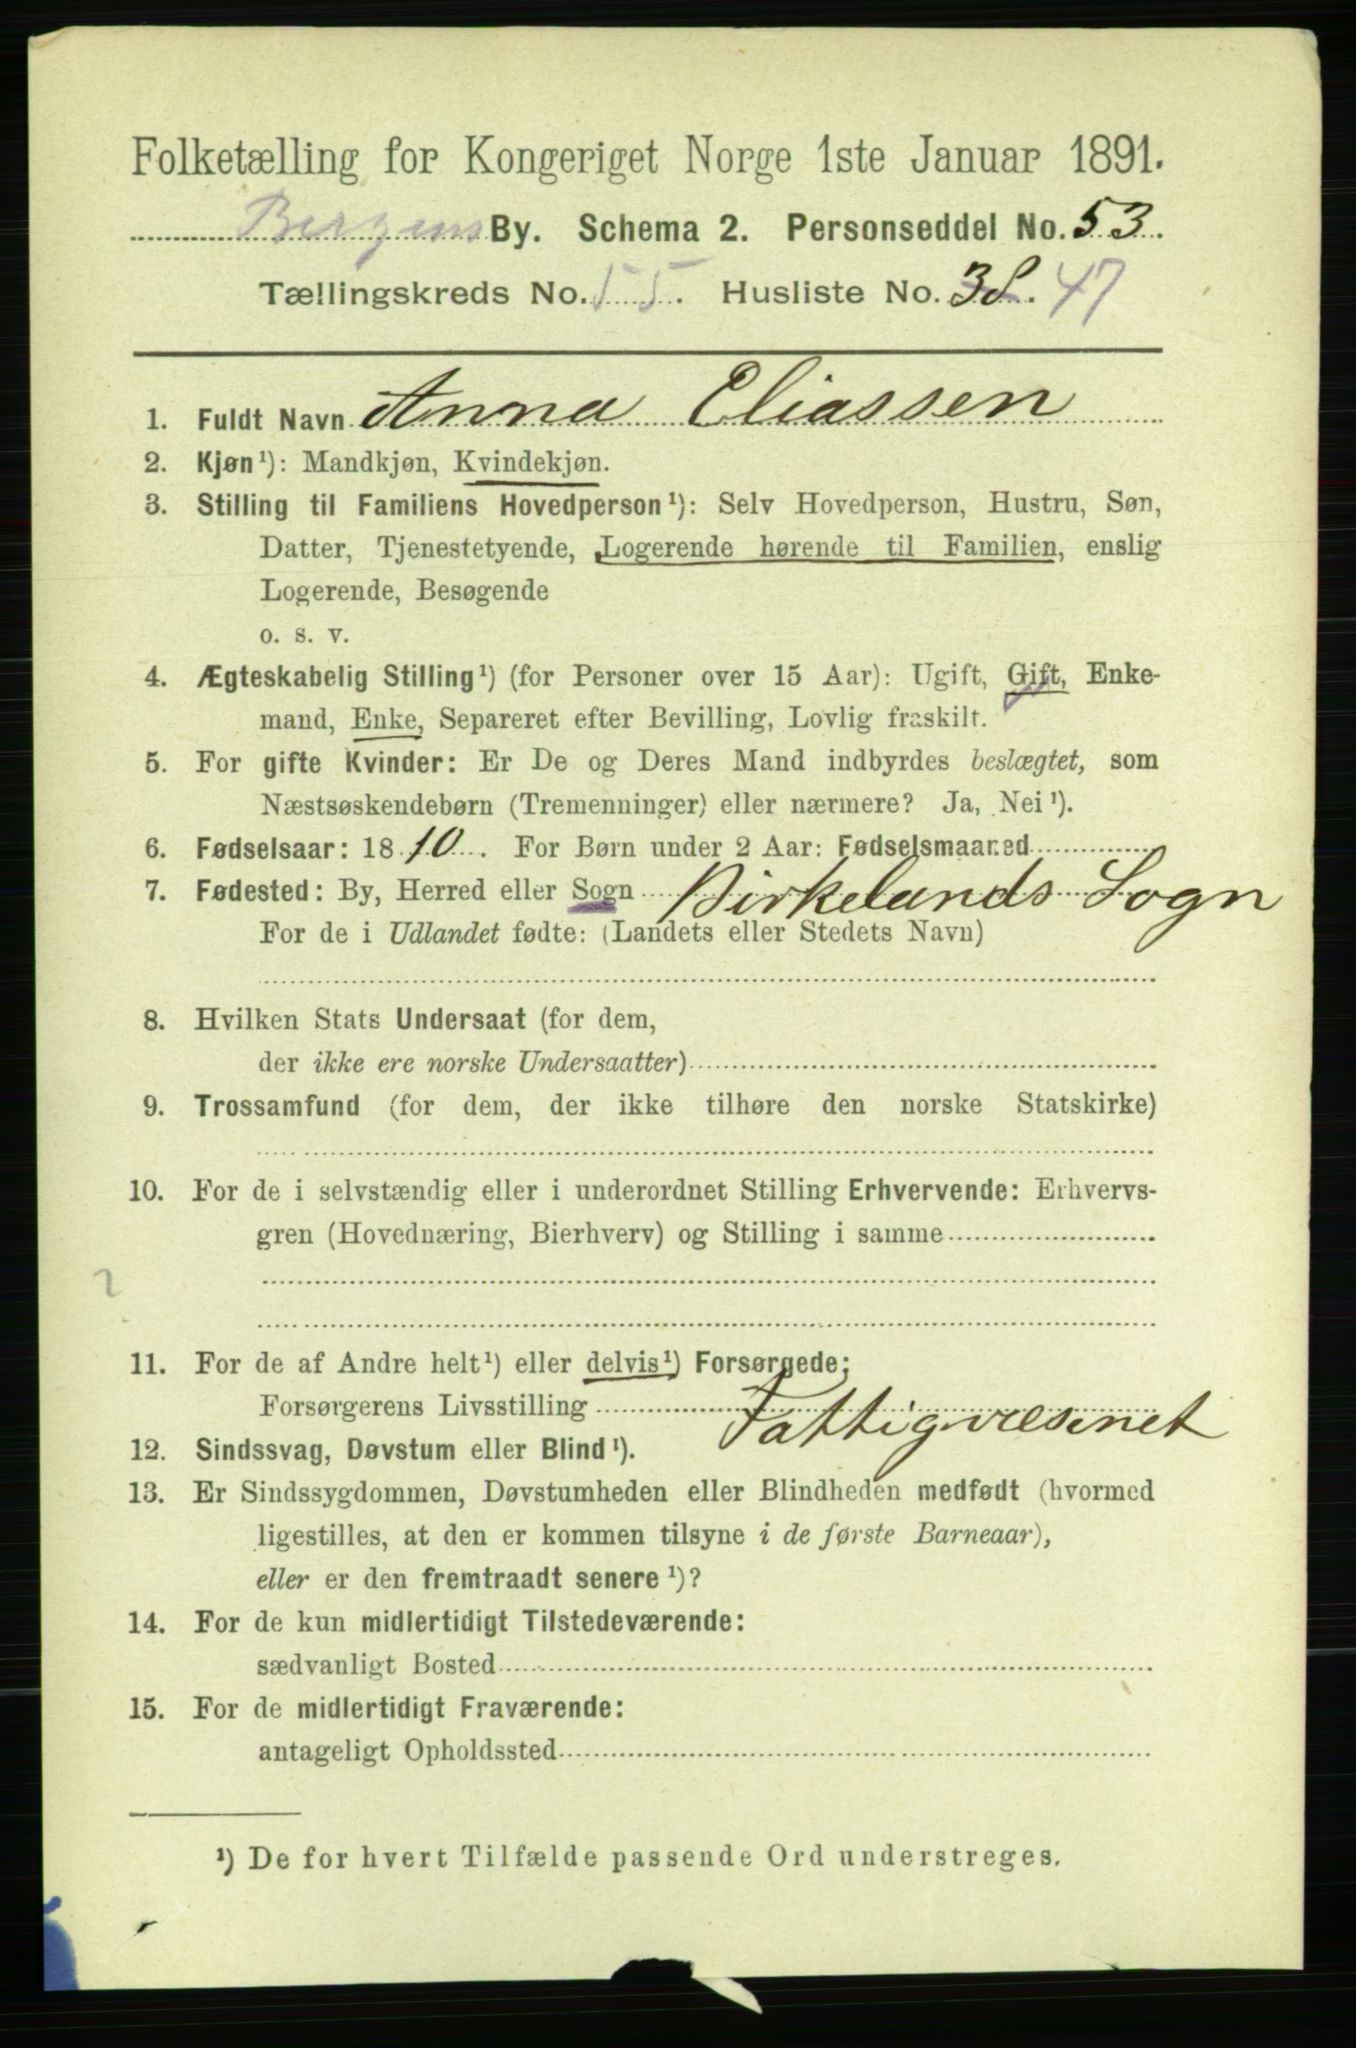 Folketælling for Kongeriget Norge 1ste Januar 1891.
Bergens By. Schema 2. Personseddel No. 53.
Tællingskreds No. 55. Husliste No. 38. 47
1. Fuldt Navn Anna Eliassen
2. Kjøn¹): Mandkjøn, Kvindekjøn.
3. Stilling til Familiens Hovedperson¹): Selv Hovedperson, Hustru, Søn,
Datter, Tjenestetyende, Logerende hørende til Familien, enslig
Logerende, Besøgende
o. s. v.
4. Ægteskabelig Stilling¹) (for Personer over 15 Aar): Ugift, Gift, Enke-
mand, Enke, Separeret efter Bevilling, Lovlig fraskilt.
5. For gifte Kvinder: Er De og Deres Mand indbyrdes beslægtet, som
Næstsøskendebørn (Tremenninger) eller nærmere? Ja, Nei¹).
6. Fødselsaar: 1810. For Børn under 2 Aar: Fødselsmaaned
7. Fødested: By, Herred eller Sogn Birkelands Sogn
For de i Udlandet fødte: (Landets eller Stedets Navn)
8. Hvilken Stats Undersaat (for dem,
der ikke ere norske Undersaatter)
9. Trossamfund (for dem, der ikke tilhøre den norske Statskirke)
10. For de i selvstændig eller i underordnet Stilling Erhvervende: Erhvervs-
gren (Hovednæring, Bierhverv) og Stilling i samme
2
11. For de af Andre helt¹) eller delvis¹) Forsørgede:
Forsørgerens Livsstilling Fattigvæsenet
12. Sindssvag, Døvstum eller Blind¹).
13. Er Sindssygdommen, Døvstumheden eller Blindheden medfødt (hvormed
ligestilles, at den er kommen tilsyne i de første Barneaar),
eller er den fremtraadt senere¹)?
14. For de kun midlertidigt Tilstedeværende:
sædvanligt Bosted
15. For de midlertidigt Fraværende:
antageligt Opholdssted
¹) De for hvert Tilfælde passende Ord understreges.